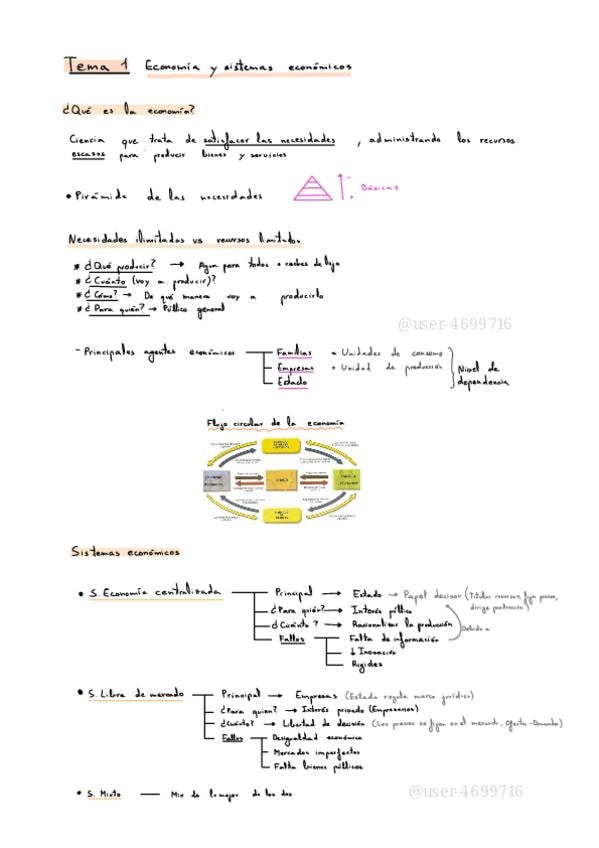 Tema 1 Economía y sistemas económicos
¿Qué es la economía?
Ciencia que trata de satisfacer las necesidades, administrando los recursos
escasos para producir bienes y servicios
• Pirámide de las necesidades
Básicas
Necesidades ilimitadas vs recursos limitados
* ¿Qué producir? → Agua para todos o coches de lujo
* ¿Cuánto (voy a producir)?
* ¿Cómo? → De qué manera voy a producirlo
* ¿Para quién? → Público general
@user-4699716
- Principales agentes económicos
Familias • Unidades de consumo
Empresas • Unidad de producción
Estado
Nivel de
dependencia
Flujo circular de la economía
Sistemas económicos
• S. Economía centralizada
Principal → Estado → Papel decisor (Titular recursos, fija precios,
¿Para quién? → Interés público
¿Cuánto? → Racionalizar la producción
Debido a
Fallos
Falta de información
↓ Inovación
Rigidez
• S. Libre de mercado
Principal → Empresas (Estado regula marco jurídico)
¿Para quien? → Interés privado (Empresarios)
¿Cuánto? → Libertad de decisión (Los precios se fijan en el mercado, Oferta-Demanda)
Fallos
Desigualdad económica
Mercados imperfectos
Falta bienes públicos
• S. Mixto — Mix de lo mejor de los dos
@user-4699716